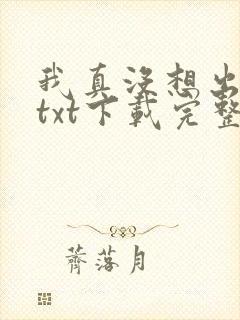 我真没想出
txt下载完整
薺落月